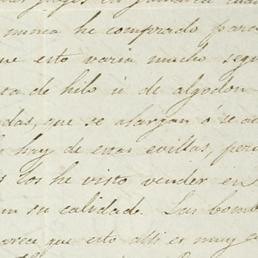 nunca he comprado para
que esto varia mucho seg
sea de hilo ú de algodon
das, que se alargan ó se ac
hay de estas evillas, per
los he visto vender en
su calidad. Las bom
parece que esto alli es muy